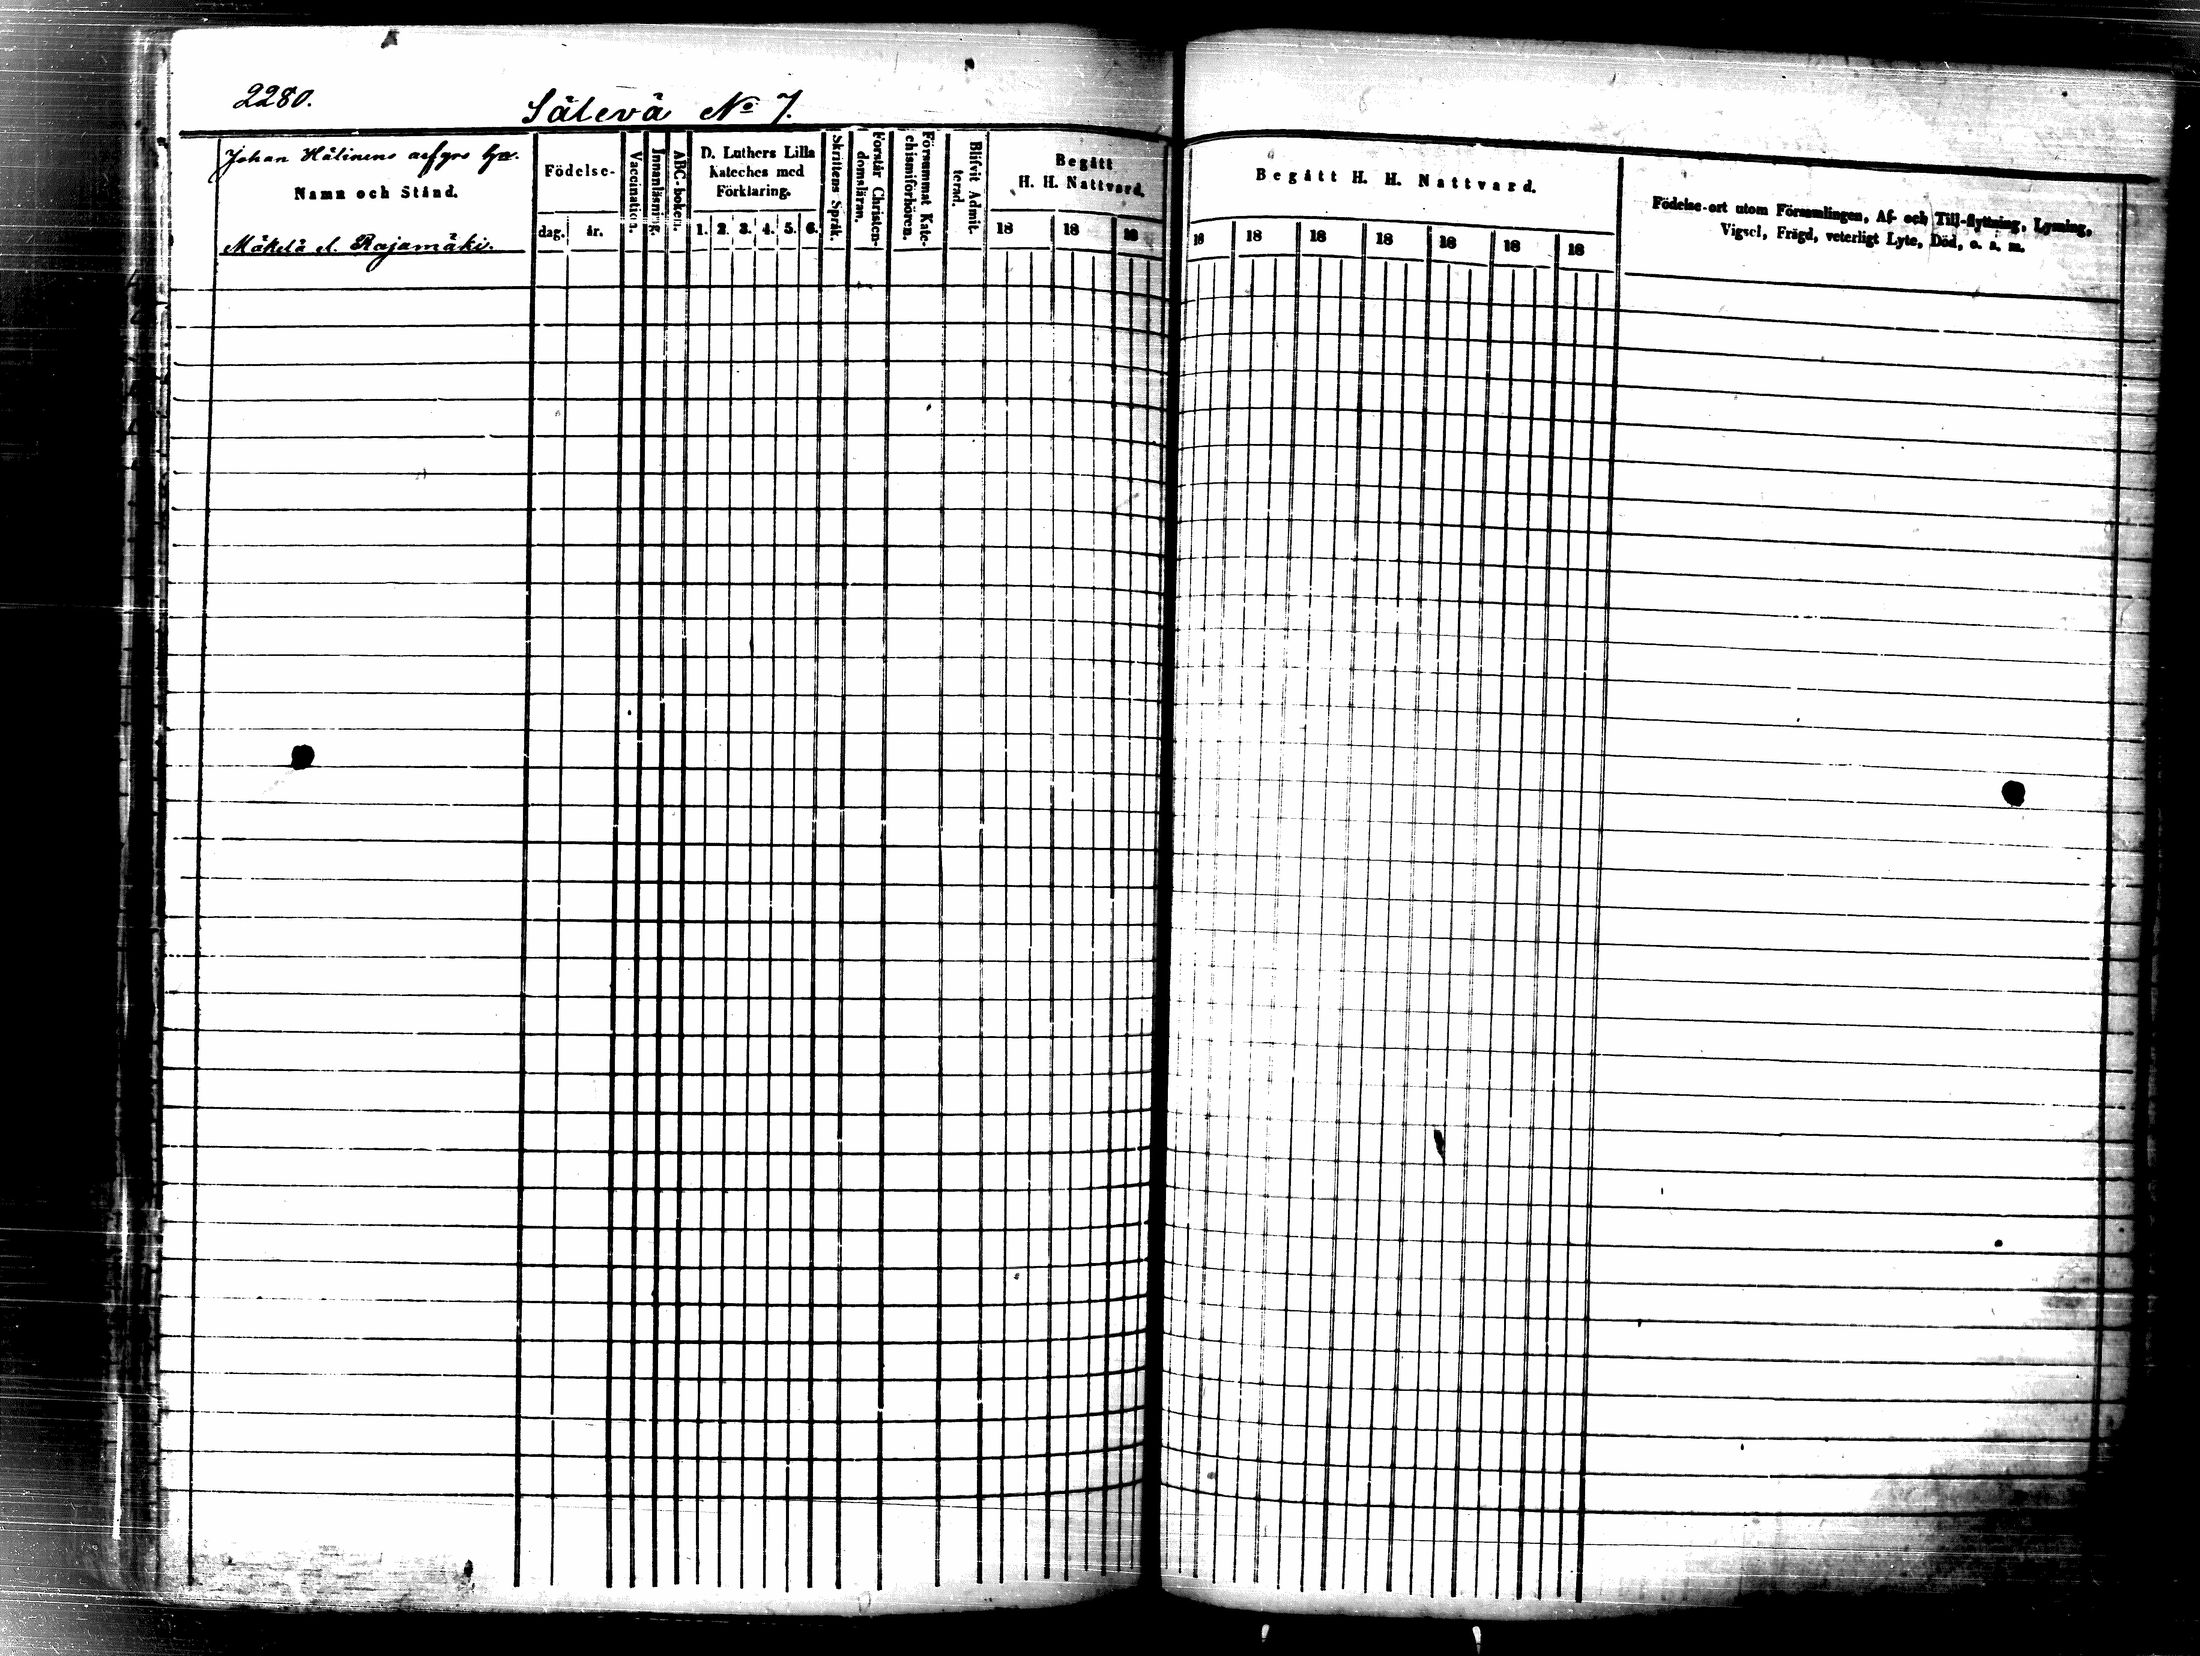 2280.
Sälevä No 7.
Johan Hälinens
Namn och Stånd.
Mäkelä el. Rajamäki.
Födelse-
dag. år.
Vaccination.
Innanläsning.
ABC-boken.
D. Luthers Lilla
Kateches med
Förklaring.
1. 2. 3. 4. 5. 6.
Skriftens Språk.
Förstår Christen-
domsläran.
Försummat Kate-
chismiförhören.
Blifvit Admit-
terad.
Begått
H. H. Nattvard.
18 18 18
Begått H. H. Nattvard.
18 18 18 18 18 18 18
Födelse-ort utom Församlingen, Af- och Till-flyttning, Lysning,
Vigsel, Frägd, veterligt Lyte, Död, o. s. m.